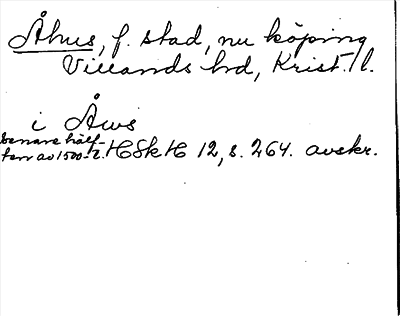 Åhus, f. stad, nu köping
Villands hd, Krist. l.
i Åws
senare hälf-
ten av 1500-t. HSkH 12, s. 264. avskr.